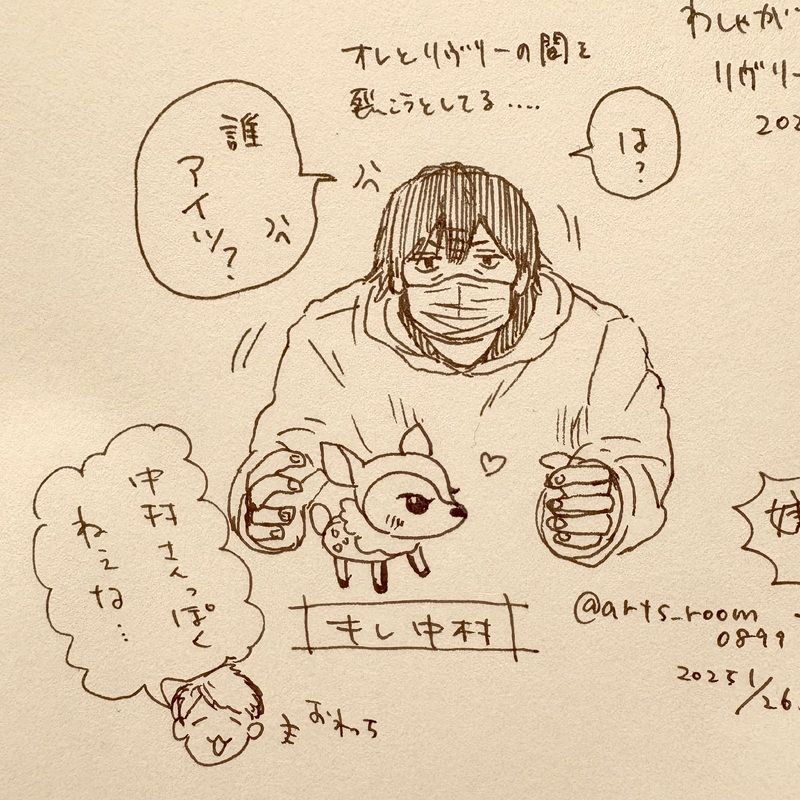 オレとリヴリーの間を
裂こうとしてる……
誰
アイツ?
は?
わしゃがな
リヴリー
202
中村さんっぽく
ねえな…
キし中村
@arts_room
0899
2025 1/26.
おわっち